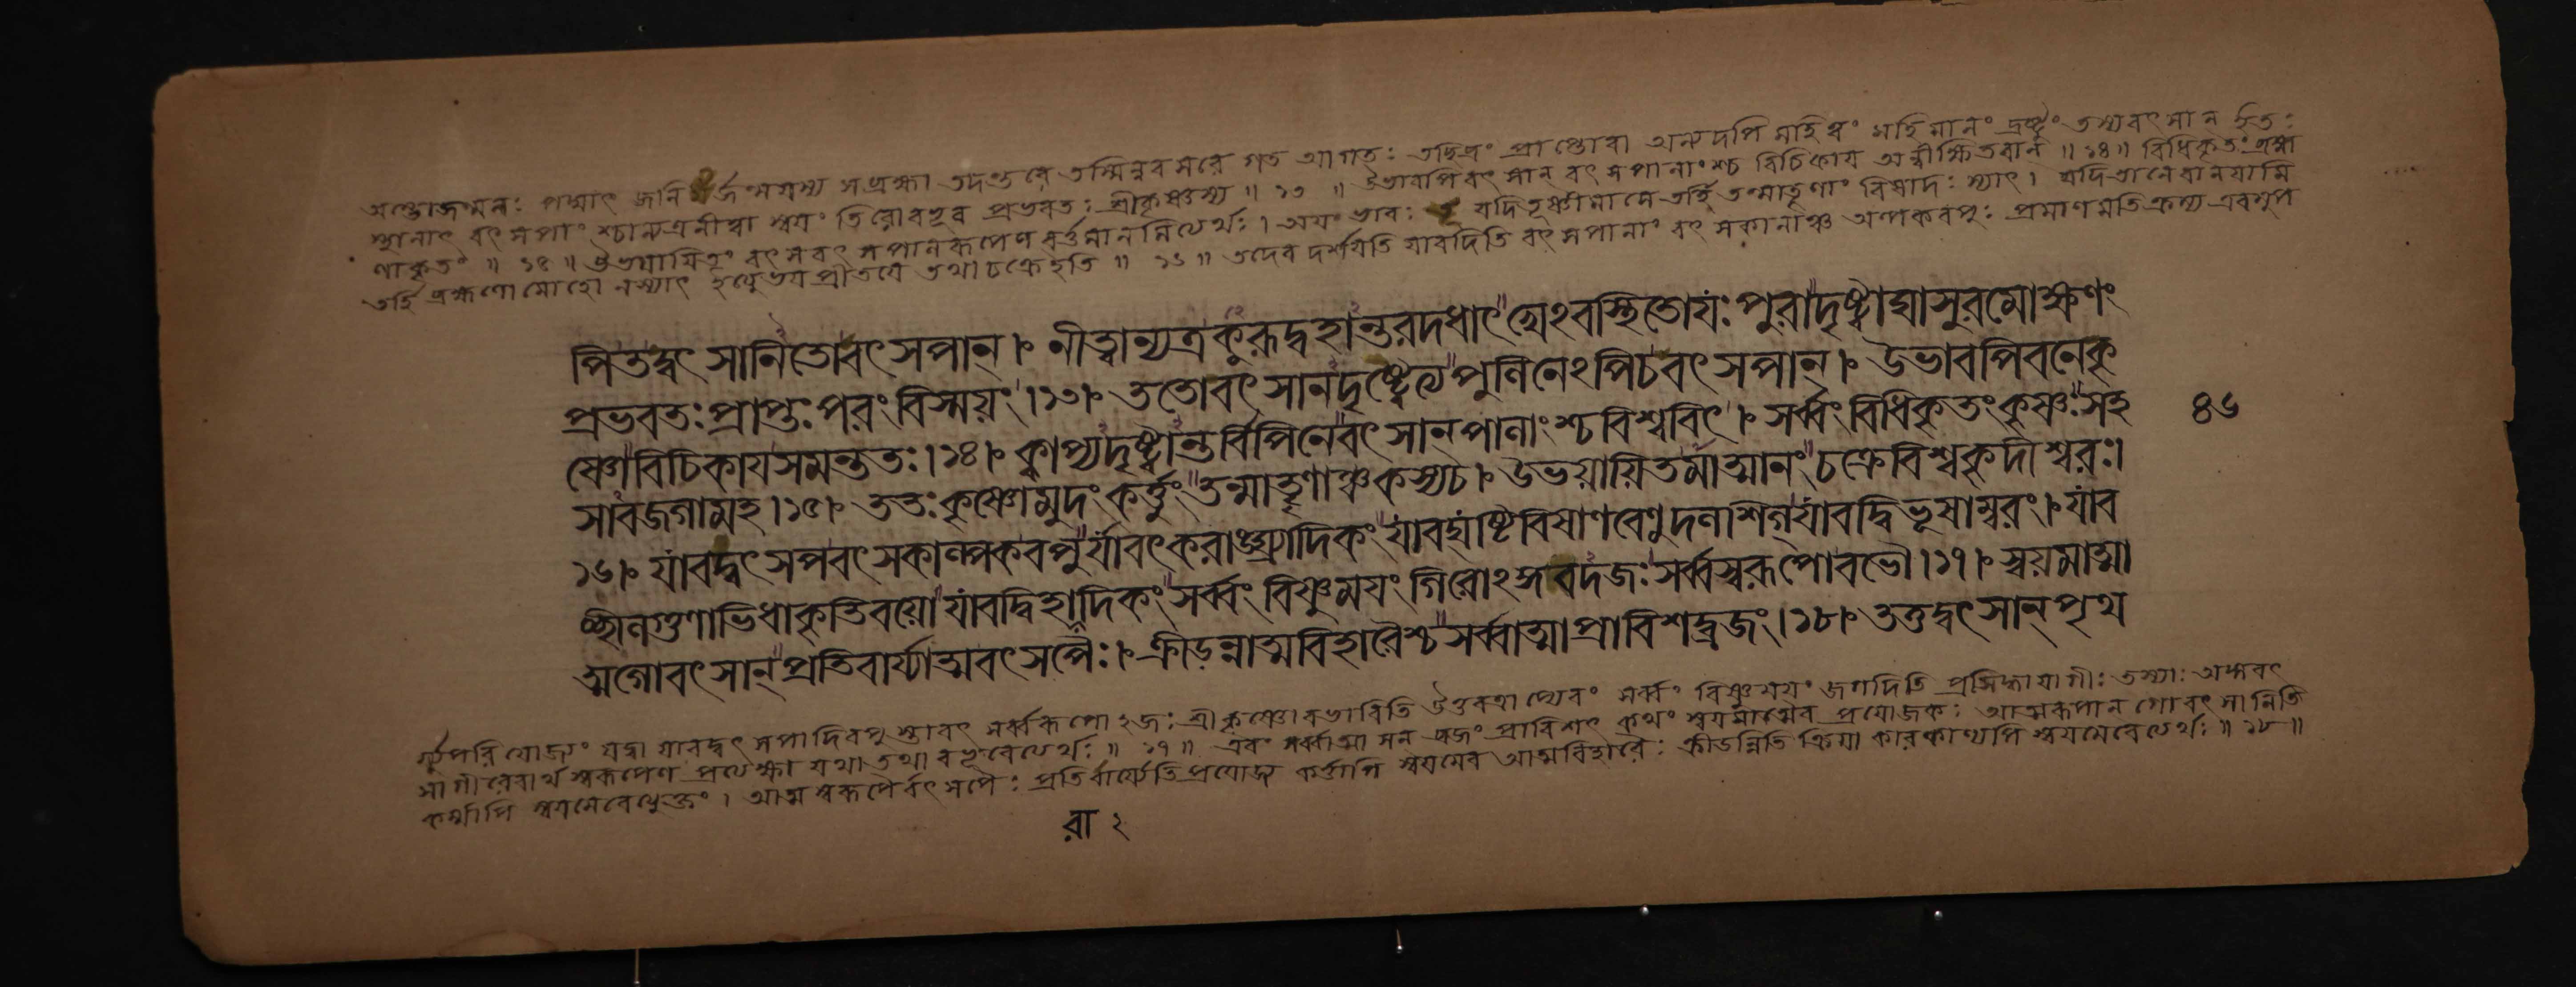 অম্ভোজন্মনঃ পদ্মাৎ জনি র্জন্মযস্য সব্রহ্মা তদন্তরে তস্মিন্নবসরে গত আগতঃ তচ্ছিদ্রং প্রাপ্তোবা অন্যদপি মহিত্বং মহিমানং দ্রষ্টুং তস্যবৎসান ইতঃ
স্থানাৎ বৎসপাংশ্চান্যত্রনীত্বা স্বয়ং তিরোবভূব প্রভবতঃ শ্রীকৃষ্ণস্য ॥ ১৩ ॥ উভাবপিবৎসান্ বৎসপানাংশ্চ বিচিকায় অন্বীক্ষিতবান্ ॥ ১৪ ॥ বিধিকৃতং ব্রহ্ম
ণাকৃতং ॥ ১৫ ॥ উভয়ায়িতং বৎসবৎসপানরূপেণ বর্ত্তমানমিত্যর্থঃ । অয়ং ভাবঃ যদিতূষ্ণীমাসে তর্হি তন্মাতৄণাং বিষাদঃ স্যাৎ । যদিতানেবানয়ামি
তর্হি ব্রহ্মণোমোহো নস্যাৎ ইত্যুভয়প্রীতয়ে তথাচক্রেইতি ॥ ১৬ ॥ তদেব দর্শয়তি যাবদিতি বৎসপানাং বৎসকানাঞ্চ অল্পকবপুঃ প্রমাণমতিক্রম্য এবমুপ
পিতদ্বৎসানিতোবৎসপান্ । নীত্বান্যত্রকুরূদ্বহান্তরদধাৎ খেঽবস্থিতোযঃ পুরাদৃষ্ট্বাঘাসুরমোক্ষণং
প্রভবতঃ প্রাপ্তঃ পরং বিস্ময়ং ।১৩। ততোবৎসানদৃষ্ট্বৈত্য পুলিনেঽপিচবৎসপান্ । উভাবপিবনেকৃ
ষ্ণোবিচিকায়সমন্ততঃ ।১৪। ক্বাপ্যদৃষ্ট্বান্তর্বিপিনে বৎসান্ পালাংশ্চবিশ্ববিৎ । সর্ব্বং বিধিকৃতং কৃষ্ণঃ সহ ৪৬
সাবজগামহ ।১৫। ততঃ কৃষ্ণোমুদং কর্ত্তুং তন্মাতৄণাঞ্চকস্যচ । উভয়ায়িতমাত্মানং চক্রেবিশ্বকৃদীশ্বরঃ ।
১৬। যাবদ্বৎসপবৎসকাল্পকবপুর্যাবৎকরাঙ্ঘ্র্যাদিকং যাবদ্যষ্টিবিষাণবেণুদলশিগ্ যাবদ্বিভূষাম্বরং । যাব
চ্ছীলগুণাভিধাকৃতিবয়ো যাবদ্বিহারাদিকং সর্ব্বং বিষ্ণুময়ং গিরোঽঙ্গবদজঃ সর্ব্বস্বরূপোবভৌ ।১৭। স্বয়মাত্মা
ত্মগোবৎসান্ প্রতিবার্য্যাত্মবৎসপৈঃ । ক্রীড়ন্নাত্মবিহারৈশ্চ সর্ব্বাত্মাপ্রাবিশদ্ব্রজং ।১৮। তত্তদ্বৎসান্ পৃথ
পরি যোজ্যং যদ্বা যাবদ্বৎসপাদিবপু স্তাবৎ সর্ব্বরূপোঽজঃ শ্রীকৃষ্ণোবভাবিতি উত্তরত্রাপ্যেবং সর্ব্বং বিষ্ণুময়ং জগদিতি প্রসিদ্ধাযাগীঃ তস্যাঃ অঙ্গবৎ
সাগীরেবার্থস্বরূপেণ প্রত্যক্ষা যথাতথা বভূবেত্যর্থঃ ॥ ১৭ ॥ এবং সর্ব্বাত্মা সন্ ব্রজং প্রাবিশৎ কথং স্বয়মাত্মৈব প্রযোজকঃ আত্মরূপান্ গোবৎসানিতি
কর্ম্মাপি স্বয়মেবেত্যুক্তং । আত্মস্বরূপৈর্বৎসপৈঃ প্রতিবার্য্যেতিপ্রযোজ্য কর্ত্তাপি স্বয়মেব আত্মবিহারৈঃ ক্রীডন্নিতি ক্রিয়া কারকাণ্যপি স্বয়মেবেত্যর্থঃ ॥ ১৮ ॥
রা ২